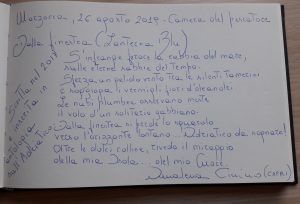 Marzocca, 26 agosto 2017 - Camera del pescatore
Dalla finestra (Lanterna Blu)
S'infrange feroce la rabbia del mare,
sulle eterne sabbie del tempo.
Sferza un gelido vento tra le silenti tamerici
e soggioga i vermigli fiori d'oleandri.
Le nubi plumbee osservano mute
il volo d'un solitario gabbiano.
Dalla finestra si perde lo sguardo
verso l'orizzonte lontano... Adriatico da sognare!
Oltre le dolci colline, rivedo il miraggio
della mia Isola... del mio Cuore.
Cimino (Capri)
Scritta nel 2017
inserita in
Antologia
sull'Adriatico